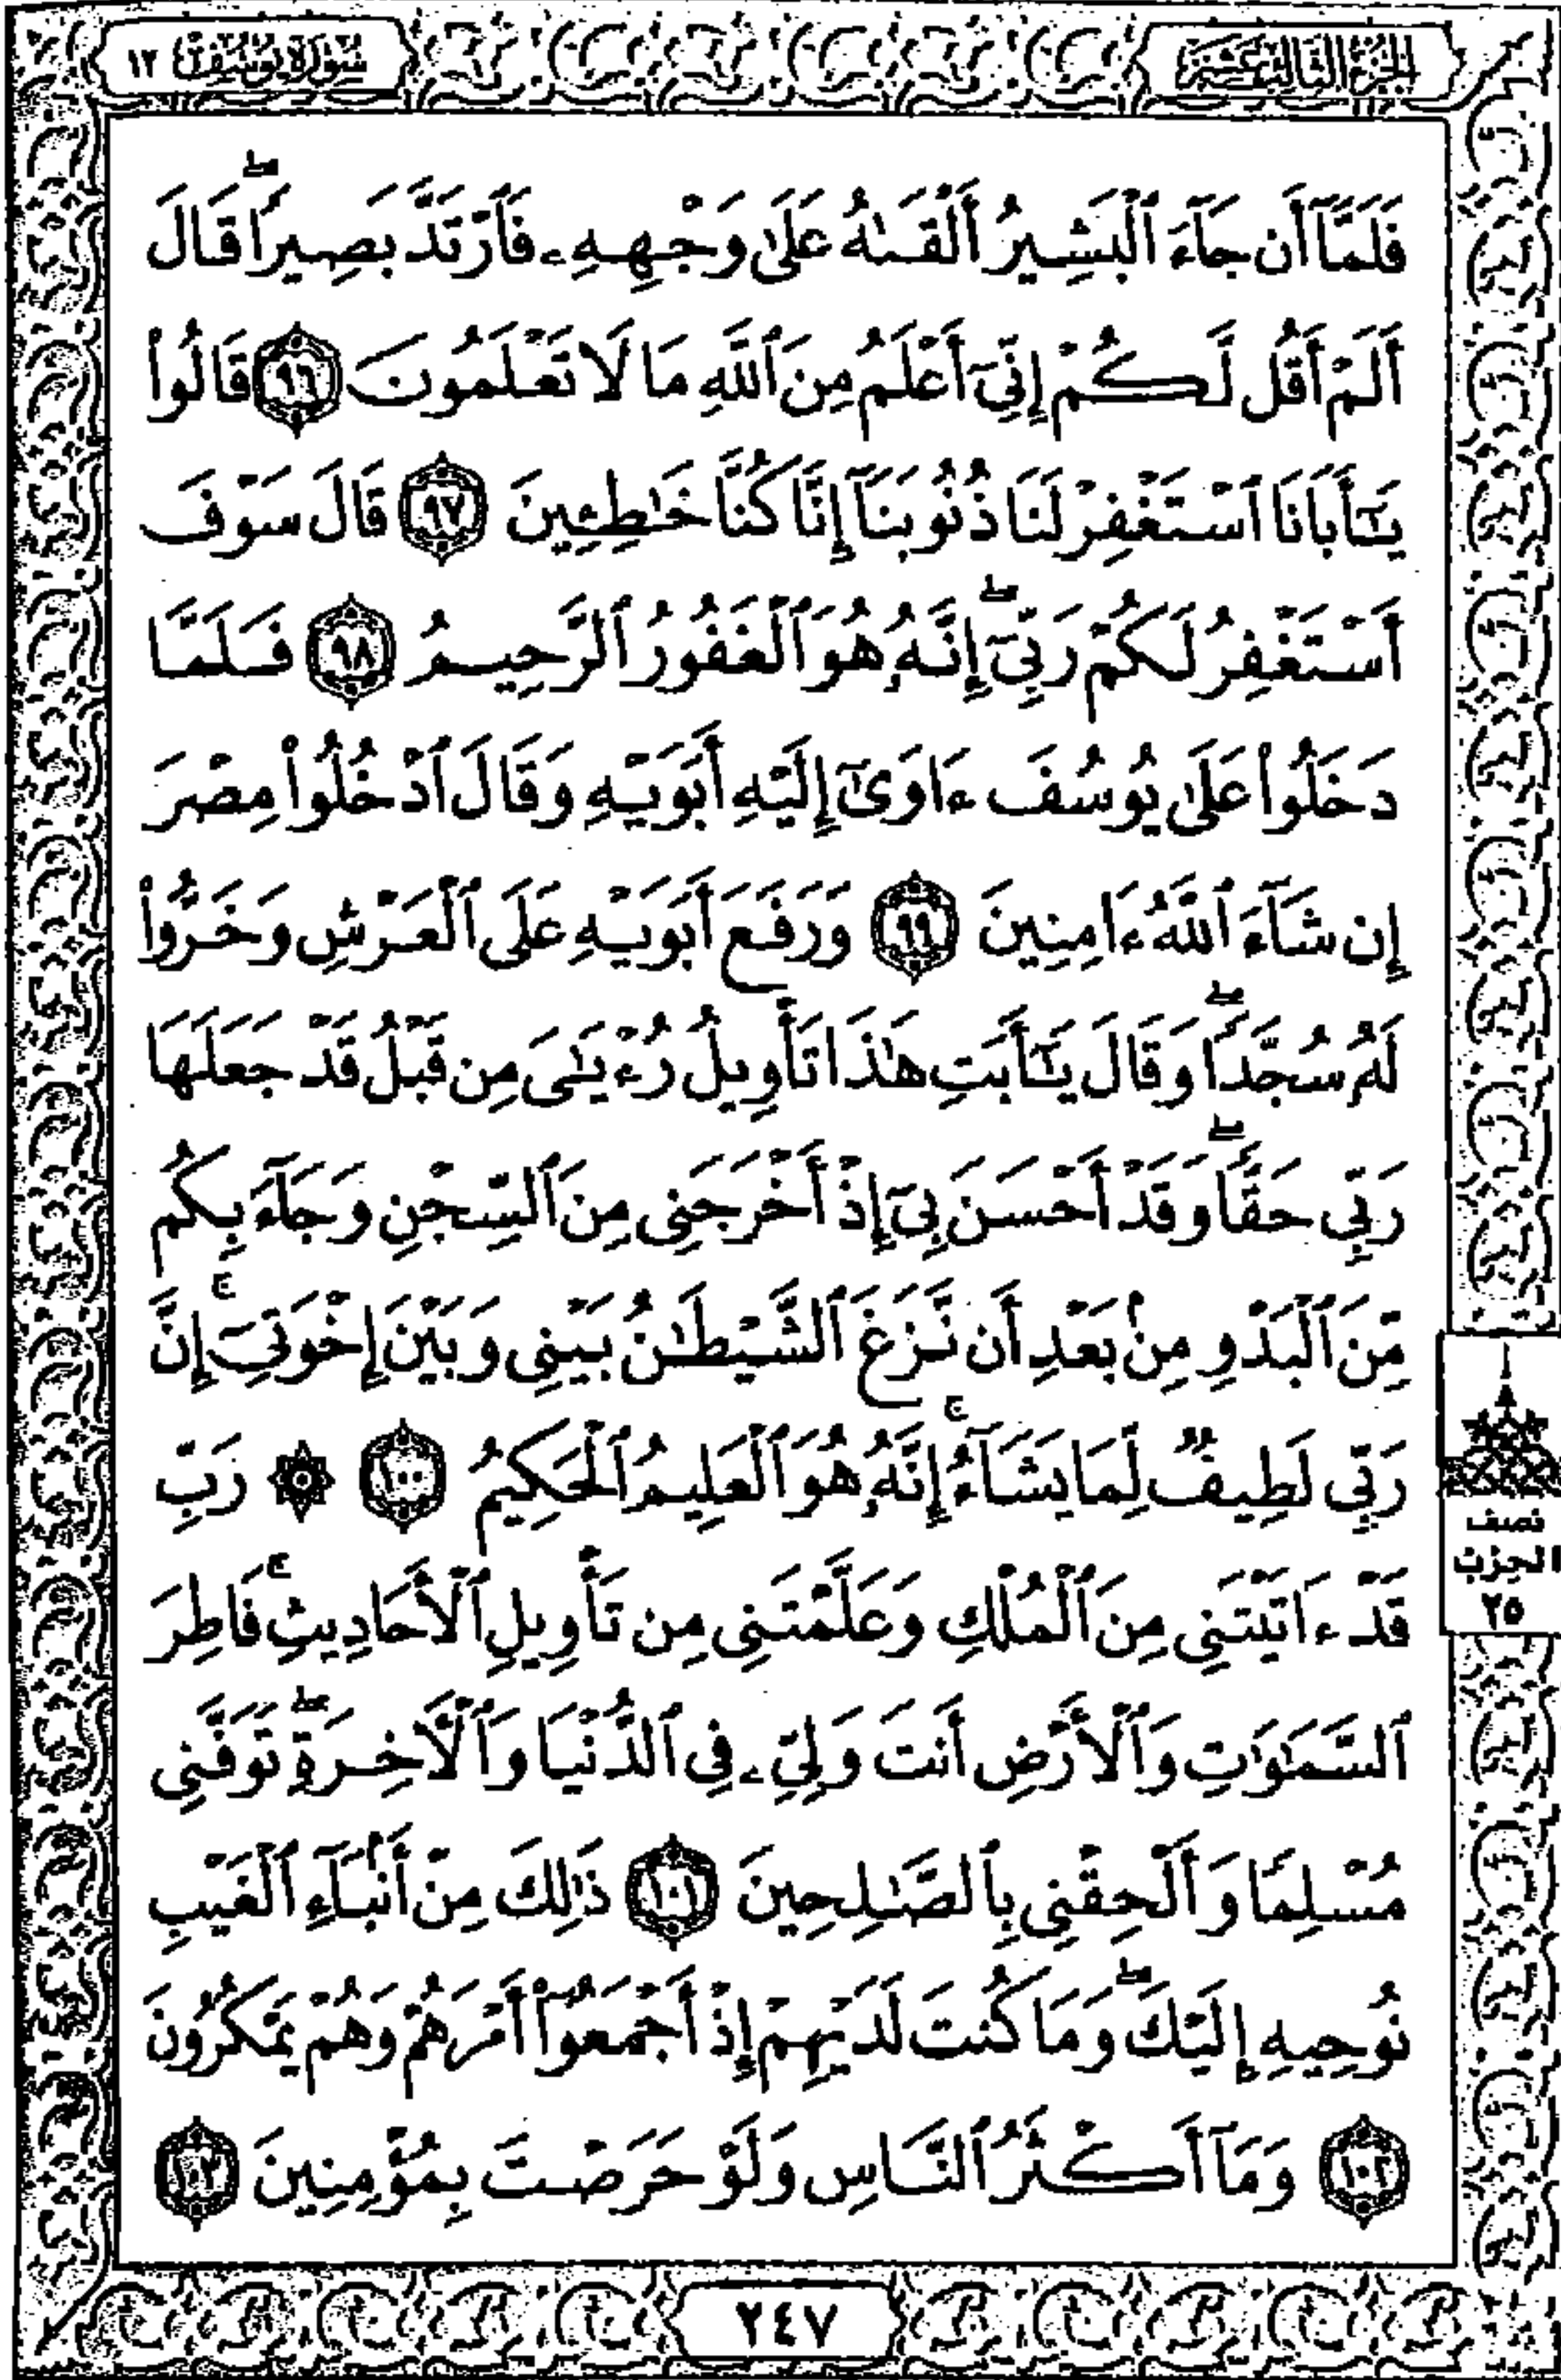 الجزء الثالث عشر
سورة يوسف ١٢
فَلَمَّآ أَن جَآءَ ٱلْبَشِيرُ أَلْقَىٰهُ عَلَىٰ وَجْهِهِۦ فَٱرْتَدَّ بَصِيرًاۖ قَالَ
أَلَمْ أَقُل لَّكُمْ إِنِّيٓ أَعْلَمُ مِنَ ٱللَّهِ مَا لَا تَعْلَمُونَ ٩٦ قَالُوا۟
يَـٰٓأَبَانَا ٱسْتَغْفِرْ لَنَا ذُنُوبَنَآ إِنَّا كُنَّا خَـٰطِـِٔينَ ٩٧ قَالَ سَوْفَ
أَسْتَغْفِرُ لَكُمْ رَبِّيٓۖ إِنَّهُۥ هُوَ ٱلْغَفُورُ ٱلرَّحِيمُ ٩٨ فَلَمَّا
دَخَلُوا۟ عَلَىٰ يُوسُفَ ءَاوَىٰٓ إِلَيْهِ أَبَوَيْهِ وَقَالَ ٱدْخُلُوا۟ مِصْرَ
إِن شَآءَ ٱللَّهُ ءَامِنِينَ ٩٩ وَرَفَعَ أَبَوَيْهِ عَلَى ٱلْعَرْشِ وَخَرُّوا۟
لَهُۥ سُجَّدًاۖ وَقَالَ يَـٰٓأَبَتِ هَـٰذَا تَأْوِيلُ رُءْيَـٰىَ مِن قَبْلُ قَدْ جَعَلَهَا
رَبِّى حَقًّاۖ وَقَدْ أَحْسَنَ بِىٓ إِذْ أَخْرَجَنِى مِنَ ٱلسِّجْنِ وَجَآءَ بِكُم
مِّنَ ٱلْبَدْوِ مِنۢ بَعْدِ أَن نَّزَغَ ٱلشَّيْطَـٰنُ بَيْنِى وَبَيْنَ إِخْوَتِىٓۚ إِنَّ
رَبِّى لَطِيفٌ لِّمَا يَشَآءُۚ إِنَّهُۥ هُوَ ٱلْعَلِيمُ ٱلْحَكِيمُ ١٠٠ ۞ رَبِّ
قَدْ ءَاتَيْتَنِى مِنَ ٱلْمُلْكِ وَعَلَّمْتَنِى مِن تَأْوِيلِ ٱلْأَحَادِيثِۚ فَاطِرَ
ٱلسَّمَـٰوَٰتِ وَٱلْأَرْضِ أَنتَ وَلِىِّۦ فِى ٱلدُّنْيَا وَٱلْـَٔاخِرَةِۖ تَوَفَّنِى
مُسْلِمًا وَأَلْحِقْنِى بِٱلصَّـٰلِحِينَ ١٠١ ذَٰلِكَ مِنْ أَنۢبَآءِ ٱلْغَيْبِ
نُوحِيهِ إِلَيْكَۖ وَمَا كُنتَ لَدَيْهِمْ إِذْ أَجْمَعُوٓا۟ أَمْرَهُمْ وَهُمْ يَمْكُرُونَ
١٠٢ وَمَآ أَكْثَرُ ٱلنَّاسِ وَلَوْ حَرَصْتَ بِمُؤْمِنِينَ ١٠٣
نصف
الحزب
٢٥
٢٤٧